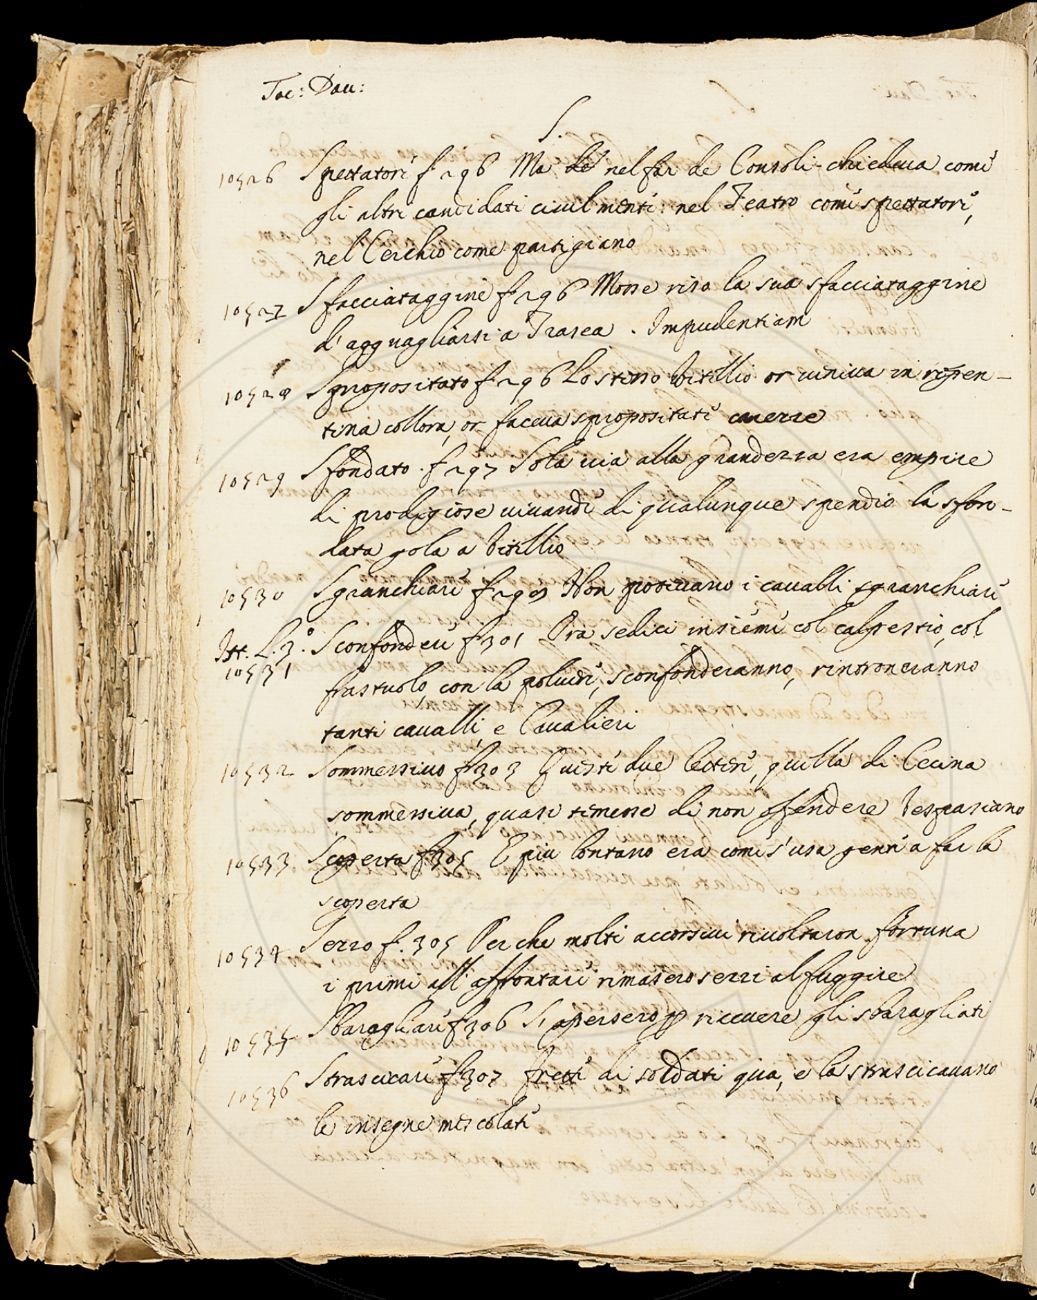 Tac: Dau:
S.
10526 Spettatori f 296 Ma nel far de Consoli chiedeva come
gli altri candidati civilmente: nel Teatro come spettatore,
nel Cerchio come partigiano
10527 Sfacciataggine f 296 Mosse riso la sua sfacciataggine
d'agguagliarsi a Trasea. Impudentiam
10528 Spropositato f 296 Lo stesso Vitellio or veniva in repen-
tina collora, or faceva spropositate carezze
10529 Sfondato. f 297 Sola via alla grandezza era empire
di prodigiose vivande di qualunque spendio la sfon-
data gola a Vitellio
10530 Sgranchiare f 299 Non potevano i cavalli sgranchiare
Ist. L. 3.° Sconfondere f 301 Ora sedici insieme col calpestio, col
10531 frastuolo, con la polvere, sconfonderanno, rintroneranno
tanti cavalli, e Cavalieri
10532 Sommessivo f 303 Queste due lettere, quella di Cecina
sommessiva, quasi temesse di non offendere Vespasiano
10533 Scoperta f 305 E piu lontano era come s'usa gente a far la
scoperta
10534 Serro f. 305 Per che molti accorsivi rivoltaron fortuna
i primi all'affrontare rimasero serri al fuggire
10535 Sbaragliare f 306 S'apersero p ricevere gli sbaragliati
10536 Strascicare f 307 frette di soldati qua, e la strascicavano
le insegne mescolate